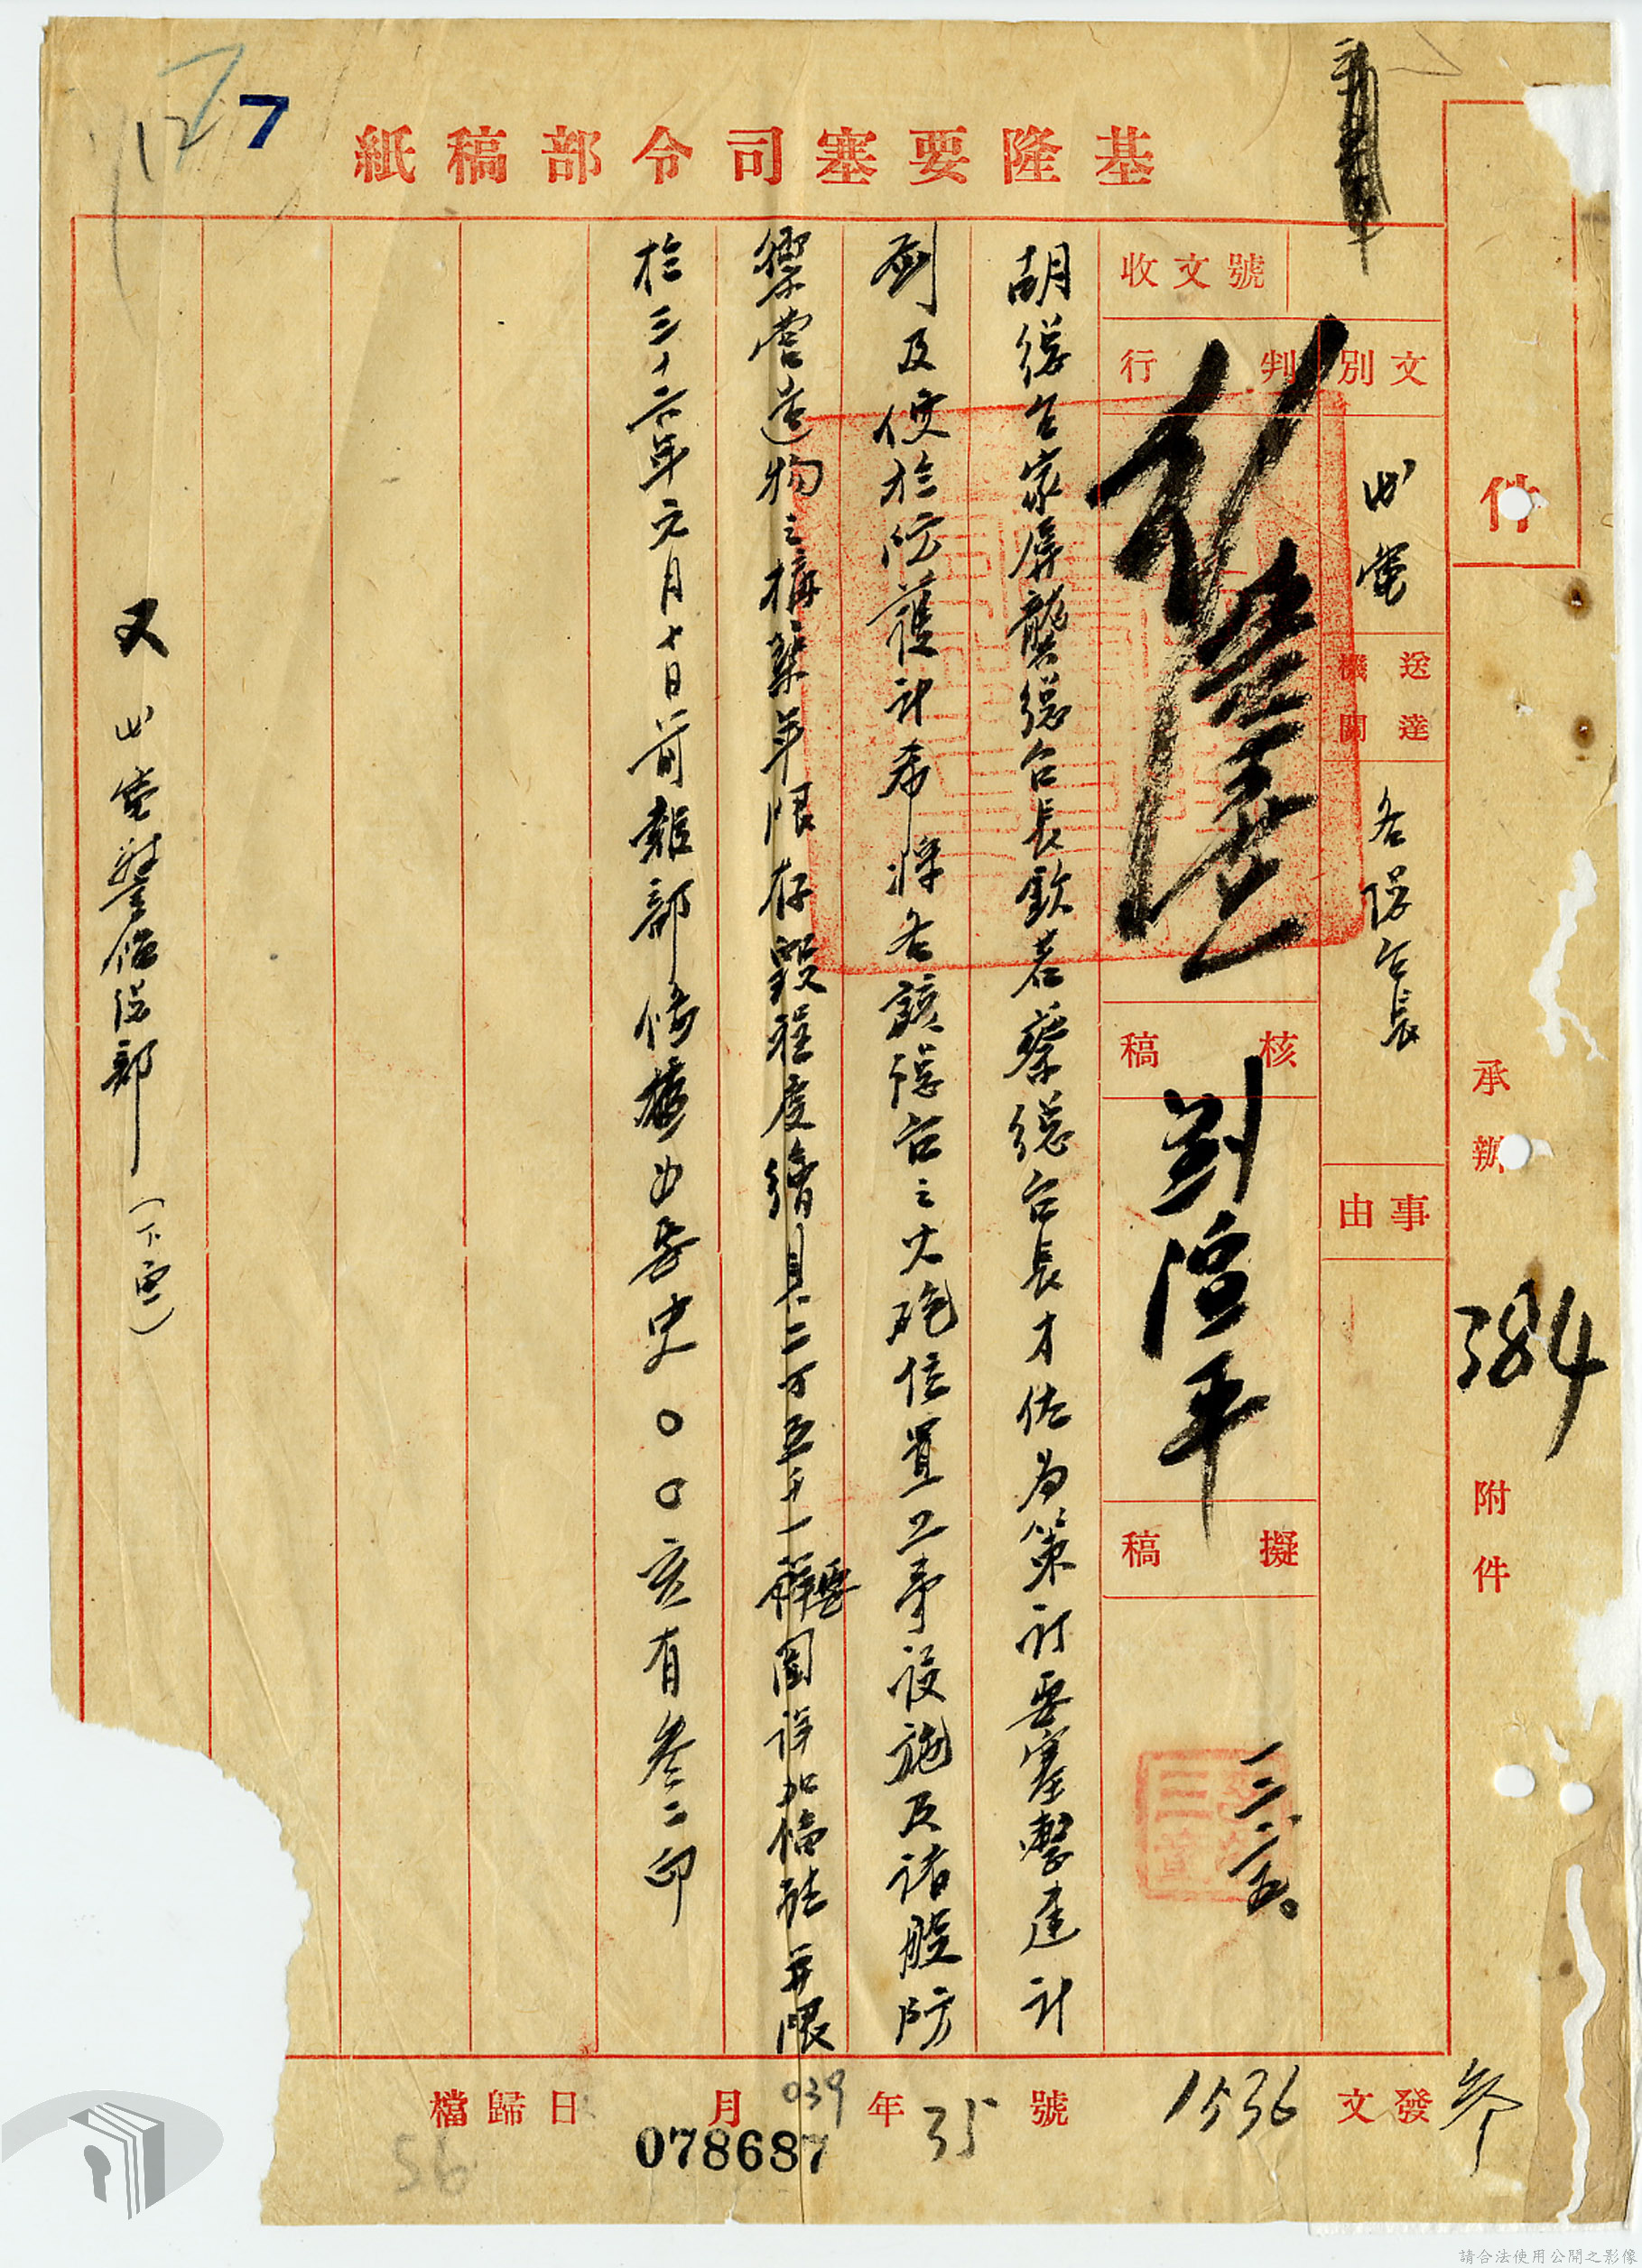 7
127
基隆要塞司令部稿紙
件
承辦
384
附件
收文號
文別
代電
送達機關
各總台長
事由
判行
核稿
劉
平
擬稿
三
胡總台家屏龔總台長欽若蔡總台長才佐為策計要塞整建計
劃及便於防護計希將各該總台之火砲位置工事設施及諸般防
禦營造物之構築年限存毀程度繪具二万五千一要圖詳加備註並限
於三十六年元月十日前報部備核如要史〇〇亥有參二印
又
代電警備總部
發文
參
1536
號
35
年
月
日歸檔
039
078687
56
請合法使用公開之影像